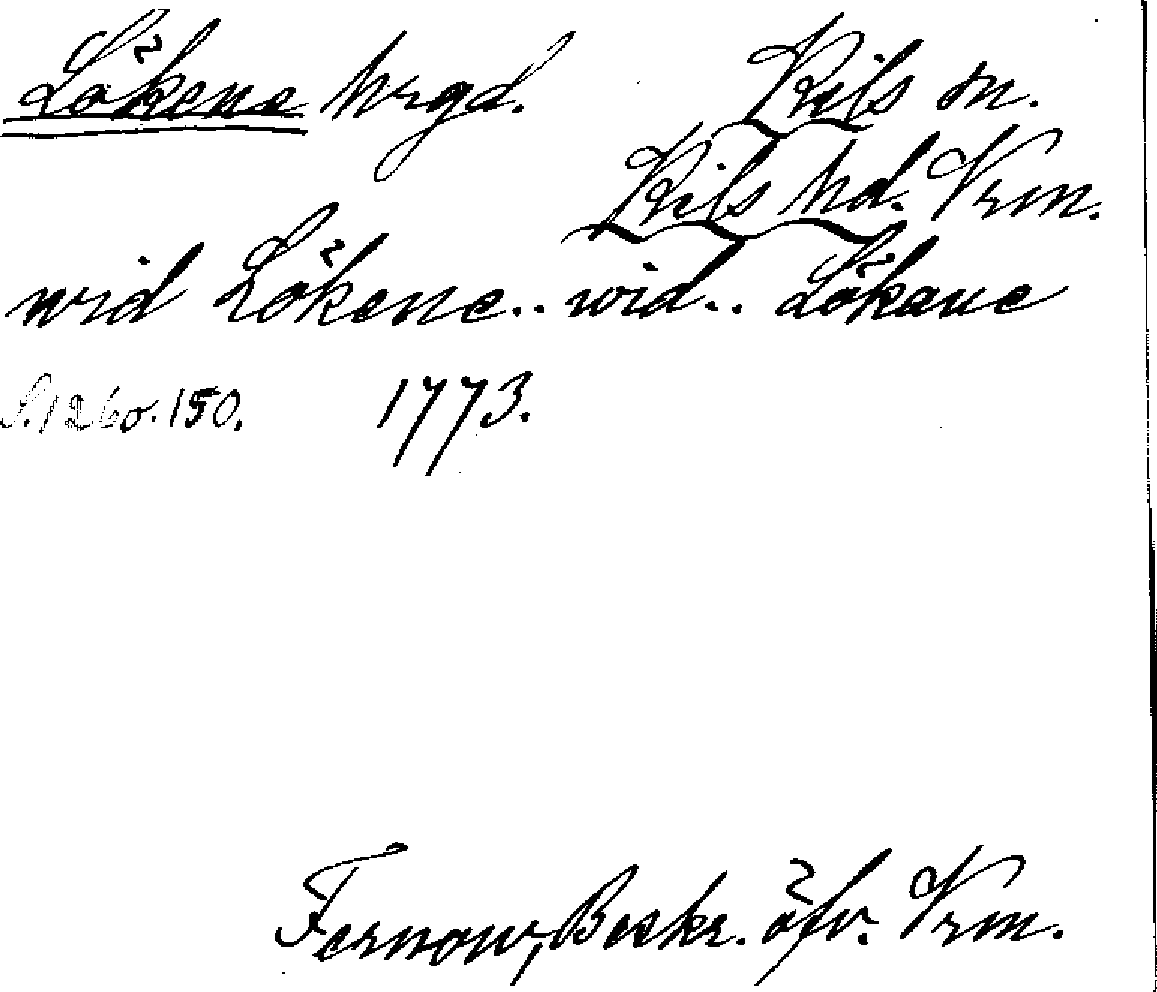 Lökene hrgd. Kils sn.
Kils hd. Vrm.
wid Lökene.. wid.. Lökane
S. 126 o. 150. 1773.
Fernow, Beskr. öfv. Vrm.